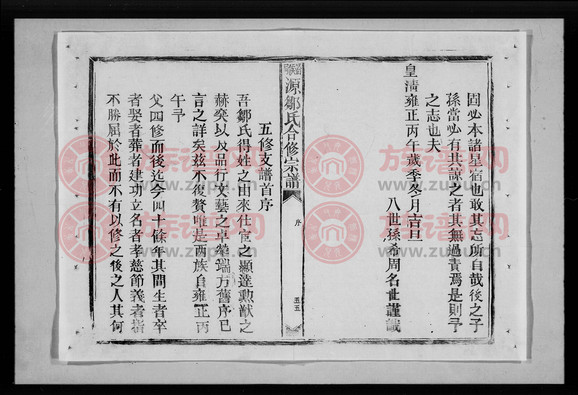 固必本諸星宿也敢其忘所自哉後之子
孫當必有其譟之者其無過責焉是則予
之志也夫
皇清雍正丙午歲季冬月吉旦
八世孫希周名世謹識
源鄒氏合修宗譜
序
五五
五修支譜首序
吾鄒氏得姓之由來仕宦之顯達勲猷之
赫奕以及品行文藝之卓犖端方舊序已
言之詳矣兹不復贅唯是兩族自雍正丙
午予
父四修而後迄今四十餘年其間生者卒
者娶者葬者建功立名者孝慈節義者指
不勝屈於此而不有以修之後之人其何
族譜网
www.zupu.cn